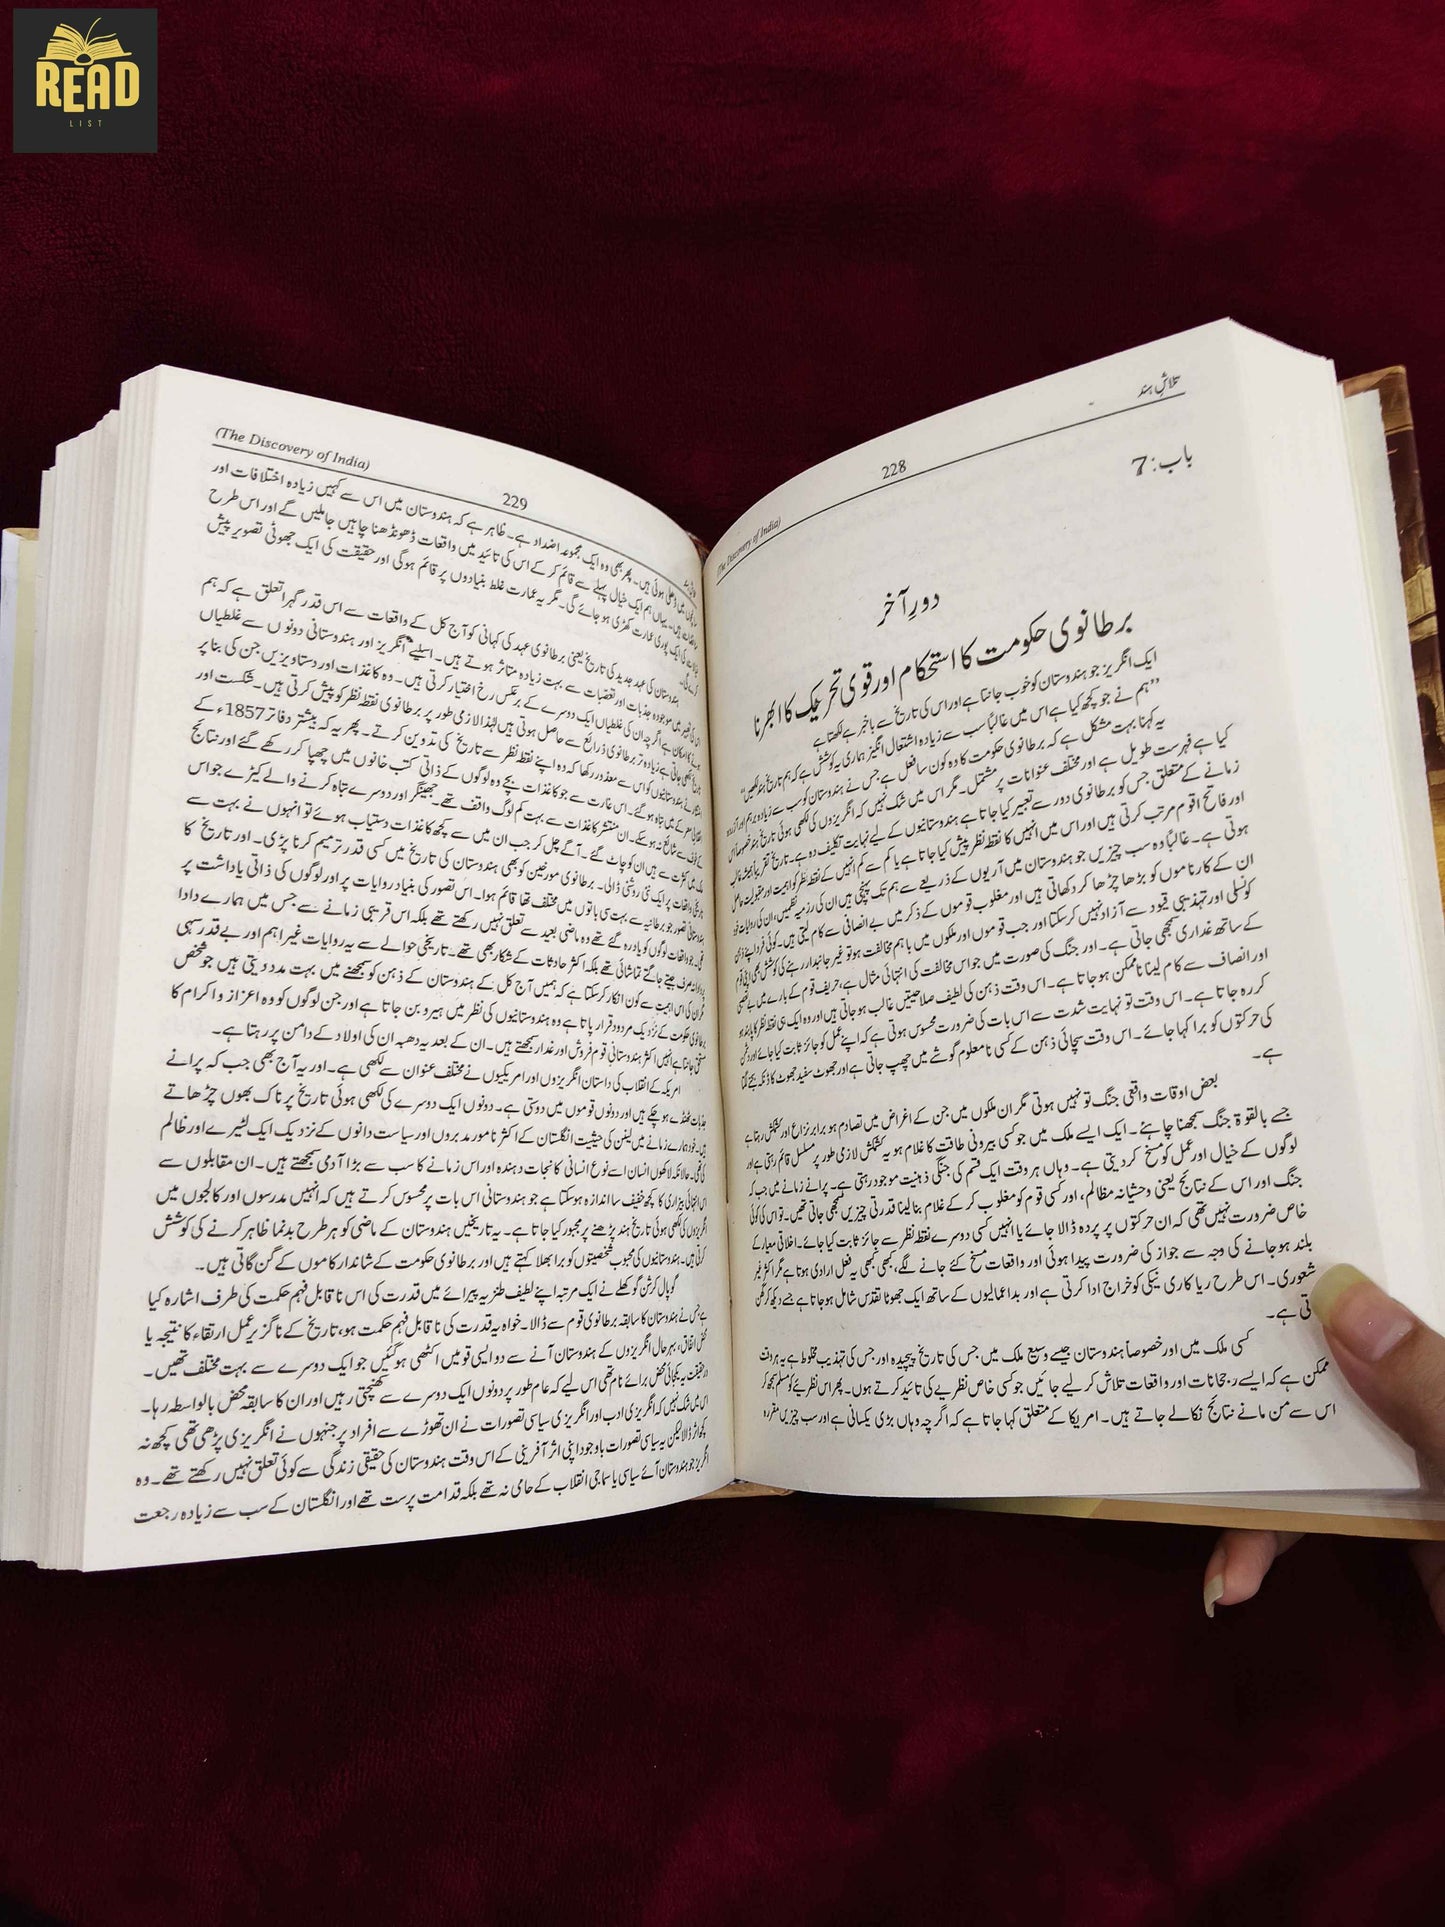 READ
LIST
تلاشِ ہند
228
(The Discovery of India)
باب: 7
دورِ آخر
برطانوی حکومت کا استحکام اور قومی تحریک کا ابھرنا
ایک انگریز جو ہندوستان کو خوب جانتا ہے اور اس کی تاریخ سے باخبر ہے لکھتا ہے
”ہم نے جو کچھ کیا ہے اس میں غالباً سب سے زیادہ اشتعال انگیز ہماری یہ کوشش ہے کہ ہم تاریخ ہند لکھیں“
یہ کہنا بہت مشکل ہے کہ برطانوی حکومت کا وہ کون سا فعل ہے جس نے ہندوستان کو سب سے زیادہ برہم اور آزردہ
کیا ہے فہرست طویل ہے اور مختلف عنوانات پر مشتمل۔ مگر اس میں شک نہیں کہ انگریزوں کی لکھی ہوئی تاریخ ہند خصوصاً اس
زمانے کے متعلق جس کو برطانوی دور سے تعبیر کیا جاتا ہے ہندوستانیوں کے لیے نہایت تکلیف دہ ہے۔ تاریخ تقریباً ہمیشہ غالب
اور فاتح اقوام مرتب کرتی ہیں اور اس میں انہیں کا نقطہ نظر پیش کیا جاتا ہے یا کم سے کم انہیں کے نقطہ نظر کو اہمیت اور مقبولیت حاصل
ہوتی ہے۔ غالباً وہ سب چیزیں جو ہندوستان میں آریوں کے ذریعے سے ہم تک پہنچی ہیں ان کی رزمیہ نظمیں، ان کی روایات خود
ان کے کارناموں کو بڑھا چڑھا کر دکھاتی ہیں اور مغلوب قوموں کے ذکر میں بے انصافی سے کام لیتی ہیں۔ کوئی فرد اپنے ذہن
کو نسلی اور تہذیبی قیود سے آزاد نہیں کرسکتا اور جب قوموں اور ملکوں میں باہم مخالفت ہو تو غیر جانبدار رہنے کی کوشش بھی اپنی قوم
کے ساتھ غداری سمجھی جاتی ہے۔ اور جنگ کی صورت میں جو اس مخالفت کی انتہائی مثال ہے، حریف قوم کے بارے میں بے تعصبی
اور انصاف سے کام لینا ناممکن ہو جاتا ہے۔ اس وقت ذہن کی لطیف صلاحیتیں غالب ہو جاتی ہیں اور وہ ایک ہی نقطہ نظر کا پابند ہو
کر رہ جاتا ہے۔ اس وقت تو نہایت شدت سے اس بات کی ضرورت محسوس ہوتی ہے کہ اپنے عمل کو جائز ثابت کیا جائے اور دشمن
کی حرکتوں کو برا کہا جائے۔ اس وقت سچائی ذہن کے کسی نامعلوم گوشے میں چھپ جاتی ہے اور جھوٹ سفید جھوٹ کا ڈنکہ بجنے لگتا
ہے۔
بعض اوقات واقعی جنگ تو نہیں ہوتی مگر ان ملکوں میں جن کے اغراض میں تصادم ہو برابر نزاع اور کشمکش رہتا ہے
جسے بالقوۃ جنگ سمجھنا چاہئے۔ ایک ایسے ملک میں جو کسی بیرونی طاقت کا غلام ہو یہ کشمکش لازمی طور پر مسلسل قائم رہتی ہے اور
لوگوں کے خیال اور عمل کو مسخ کردیتی ہے۔ وہاں ہر وقت ایک قسم کی جنگی ذہنیت موجود رہتی ہے۔ پرانے زمانے میں جب کہ
جنگ اور اس کے نتائج یعنی وحشیانہ مظالم، اور کسی قوم کو مغلوب کر کے غلام بنا لینا قدرتی چیزیں سمجھی جاتی تھیں۔ تو اس کی کوئی
خاص ضرورت نہیں تھی کہ ان حرکتوں پر پردہ ڈالا جائے یا انہیں کسی دوسرے نقطہ نظر سے جائز ثابت کیا جائے۔ اخلاقی معیار کے
بلند ہو جانے کی وجہ سے جواز کی ضرورت پیدا ہوئی اور واقعات مسخ کئے جانے لگے، کبھی کبھی یہ فعل ارادی ہوتا ہے مگر اکثر غیر
شعوری۔ اس طرح ریاکاری نیکی کو خراج ادا کرتی ہے اور بداعمالیوں کے ساتھ ایک جھوٹا تقدس شامل ہو جاتا ہے جسے دیکھ کر گھن
تی ہے۔
کسی ملک میں اور خصوصاً ہندوستان جیسے وسیع ملک میں جس کی تاریخ پیچیدہ اور جس کی تہذیب مخلوط ہے یہ ہر وقت
ممکن ہے کہ ایسے رجحانات اور واقعات تلاش کر لیے جائیں جو کسی خاص نظریے کی تائید کرتے ہوں۔ پھر اس نظریئے کو مسلم سمجھ کر
اس سے من مانے نتائج نکالے جاتے ہیں۔ امریکا کے متعلق کہا جاتا ہے کہ اگر چہ وہاں بڑی یکسانی ہے اور سب چیزیں مقررہ
229
(The Discovery of India)
ہوئی ہیں۔ پھر بھی وہ ایک مجموعہ اضداد ہے۔ ظاہر ہے کہ ہندوستان میں اس سے کہیں زیادہ اختلافات اور
ہیں۔ یہاں ہم ایک خیال پہلے سے قائم کر کے اس کی تائید میں واقعات ڈھونڈھنا چاہیں جا ملیں گے اور اس طرح
ایک پوری عمارت کھڑی ہو جائے گی۔ مگر یہ عمارت غلط بنیادوں پر قائم ہوگی اور حقیقت کی ایک جھوٹی تصویر پیش
کرے گی۔
ہندوستان کی عہد جدید کی تاریخ یعنی برطانوی عہد کی کہانی کو آج کل کے واقعات سے اس قدر گہرا تعلق ہے کہ ہم
اس کی تعبیر میں موجودہ جذبات اور تعصبات سے بہت زیادہ متاثر ہوتے ہیں۔ اسلیے انگریز اور ہندوستانی دونوں سے غلطیاں
ہونے کا امکان ہے اگر چہ ان کی غلطیاں ایک دوسرے کے برعکس رخ اختیار کرتی ہیں۔ وہ کاغذات اور دستاویزیں جن کی بنا پر
تاریخ لکھی جاتی ہے زیادہ تر برطانوی ذرائع سے حاصل ہوتی ہیں لہٰذا لازمی طور پر برطانوی نقطہ نظر کو پیش کرتی ہیں۔ شکست اور
انتشار نے ہندوستانیوں کو اس سے معذور رکھا کہ وہ اپنے نقطہ نظر سے تاریخ کی تدوین کرتے۔ پھر یہ کہ بیشتر دفاتر 1857ء کے
میں تباہ ہو گئے۔ اس غارت سے جو کاغذات بچے وہ لوگوں کے ذاتی کتب خانوں میں چھپا کر رکھے گئے اور نتائج
کے خوف سے شائع نہ ہو سکے۔ ان منتشر کاغذات سے بہت کم لوگ واقف تھے۔ جھینگر اور دوسرے تباہ کرنے والے کیڑے جو اس
ملک میں کثرت سے ہیں ان کو چاٹ گئے۔ آگے چل کر جب ان میں سے کچھ کاغذات دستیاب ہوئے تو انہوں نے بہت سے
تاریخی واقعات پر ایک نئی روشنی ڈالی۔ برطانوی مورخین کو بھی ہندوستان کی تاریخ میں کسی قدر ترمیم کرنا پڑی۔ اور تاریخ کا
ہندوستانی تصور جو برطانیہ سے بہت سی باتوں میں مختلف تھا قائم ہوا۔ اس تصور کی بنیاد روایات پر اور لوگوں کی ذاتی یاداشت پر
تھی۔ جو واقعات لوگوں کو یاد رہ گئے تھے وہ ماضی بعید سے تعلق نہیں رکھتے تھے بلکہ اس قریبی زمانے سے جس میں ہمارے دادا
پردادا نہ صرف جیتے جاگتے تماشائی تھے بلکہ اکثر حادثات کے شکار بھی تھے۔ تاریخی حوالے سے یہ روایات غیر اہم اور بے قدر سہی
مگر ان کی اس اہمیت سے کون انکار کرسکتا ہے کہ ہمیں آج کل کے ہندوستان کے ذہن کو سمجھنے میں بہت مدد دیتی ہیں جو شخص
برطانوی حکومت کے نزدیک مردود قرار پاتا ہے وہ ہندوستانیوں کی نظر میں ہیرو بن جاتا ہے اور جن لوگوں کو وہ اعزاز و اکرام کا
مستحق جانتا ہے انہیں اکثر ہندوستانی قوم فروش اور غدار سمجھتے ہیں۔ ان کے بعد یہ دھبہ ان کی اولاد کے دامن پر رہتا ہے۔
امریکہ کے انقلاب کی داستان انگریزوں اور امریکیوں نے مختلف عنوان سے لکھی ہے۔ اور یہ آج بھی جب کہ پرانے
جذبات ٹھنڈے ہو چکے ہیں اور دونوں قوموں میں دوستی ہے۔ دونوں ایک دوسرے کی لکھی ہوئی تاریخ پر ناک بھوں چڑھاتے
ہیں۔ خود ہمارے زمانے میں لینن کی حیثیت انگلستان کے اکثر نامور مدبروں اور سیاست دانوں کے نزدیک ایک لٹیرے اور ظالم
کی تھی۔ حالانکہ لاکھوں انسان اسے نوع انسانی کا نجات دہندہ اور اس زمانے کا سب سے بڑا آدمی سمجھتے ہیں۔ ان مقابلوں سے
اس انتہائی بیزاری کا کچھ خفیف سا اندازہ ہوسکتا ہے جو ہندوستانی اس بات پر محسوس کرتے ہیں کہ انہیں مدرسوں اور کالجوں میں
انگریزوں کی لکھی ہوئی تاریخ ہند پڑھنے پر مجبور کیا جاتا ہے۔ یہ تاریخیں ہندوستان کے ماضی کو ہر طرح بدنما ظاہر کرنے کی کوشش
کرتی ہیں۔ ہندوستانیوں کی محبوب شخصیتوں کو برا بھلا کہتے ہیں اور برطانوی حکومت کے شاندار کاموں کے گن گاتی ہیں۔
گوپال کرشن گوکھلے نے ایک مرتبہ اپنے لطیف طنزیہ پیرائے میں قدرت کی اس ناقابل فہم حکمت کی طرف اشارہ کیا
ہے جس نے ہندوستان کا سابقہ برطانوی قوم سے ڈالا۔ خواہ یہ قدرت کی ناقابل فہم حکمت ہو، تاریخ کے ناگزیر عمل ارتقاء کا نتیجہ یا
محض اتفاق، بہرحال انگریزوں کے ہندوستان آنے سے دو ایسی قومیں اکٹھی ہو گئیں جو ایک دوسرے سے بہت مختلف تھیں۔
درحقیقت یہ یکجائی محض برائے نام تھی اس لیے کہ عام طور پر دونوں ایک دوسرے سے کھنچتی رہیں اور ان کا سابقہ محض بالواسطہ رہا۔
اس میں شک نہیں کہ انگریزی ادب اور انگریزی سیاسی تصورات نے ان تھوڑے سے افراد پر جنہوں نے انگریزی پڑھی تھی کچھ نہ
کچھ اثر ڈالا لیکن یہ سیاسی تصورات باوجود اپنی اثر آفرینی کے اس وقت ہندوستان کی حقیقی زندگی سے کوئی تعلق نہیں رکھتے تھے۔ وہ
انگریز جو ہندوستان آئے سیاسی یا سماجی انقلاب کے حامی نہ تھے بلکہ قدامت پرست تھے اور انگلستان کے سب سے زیادہ رجعت